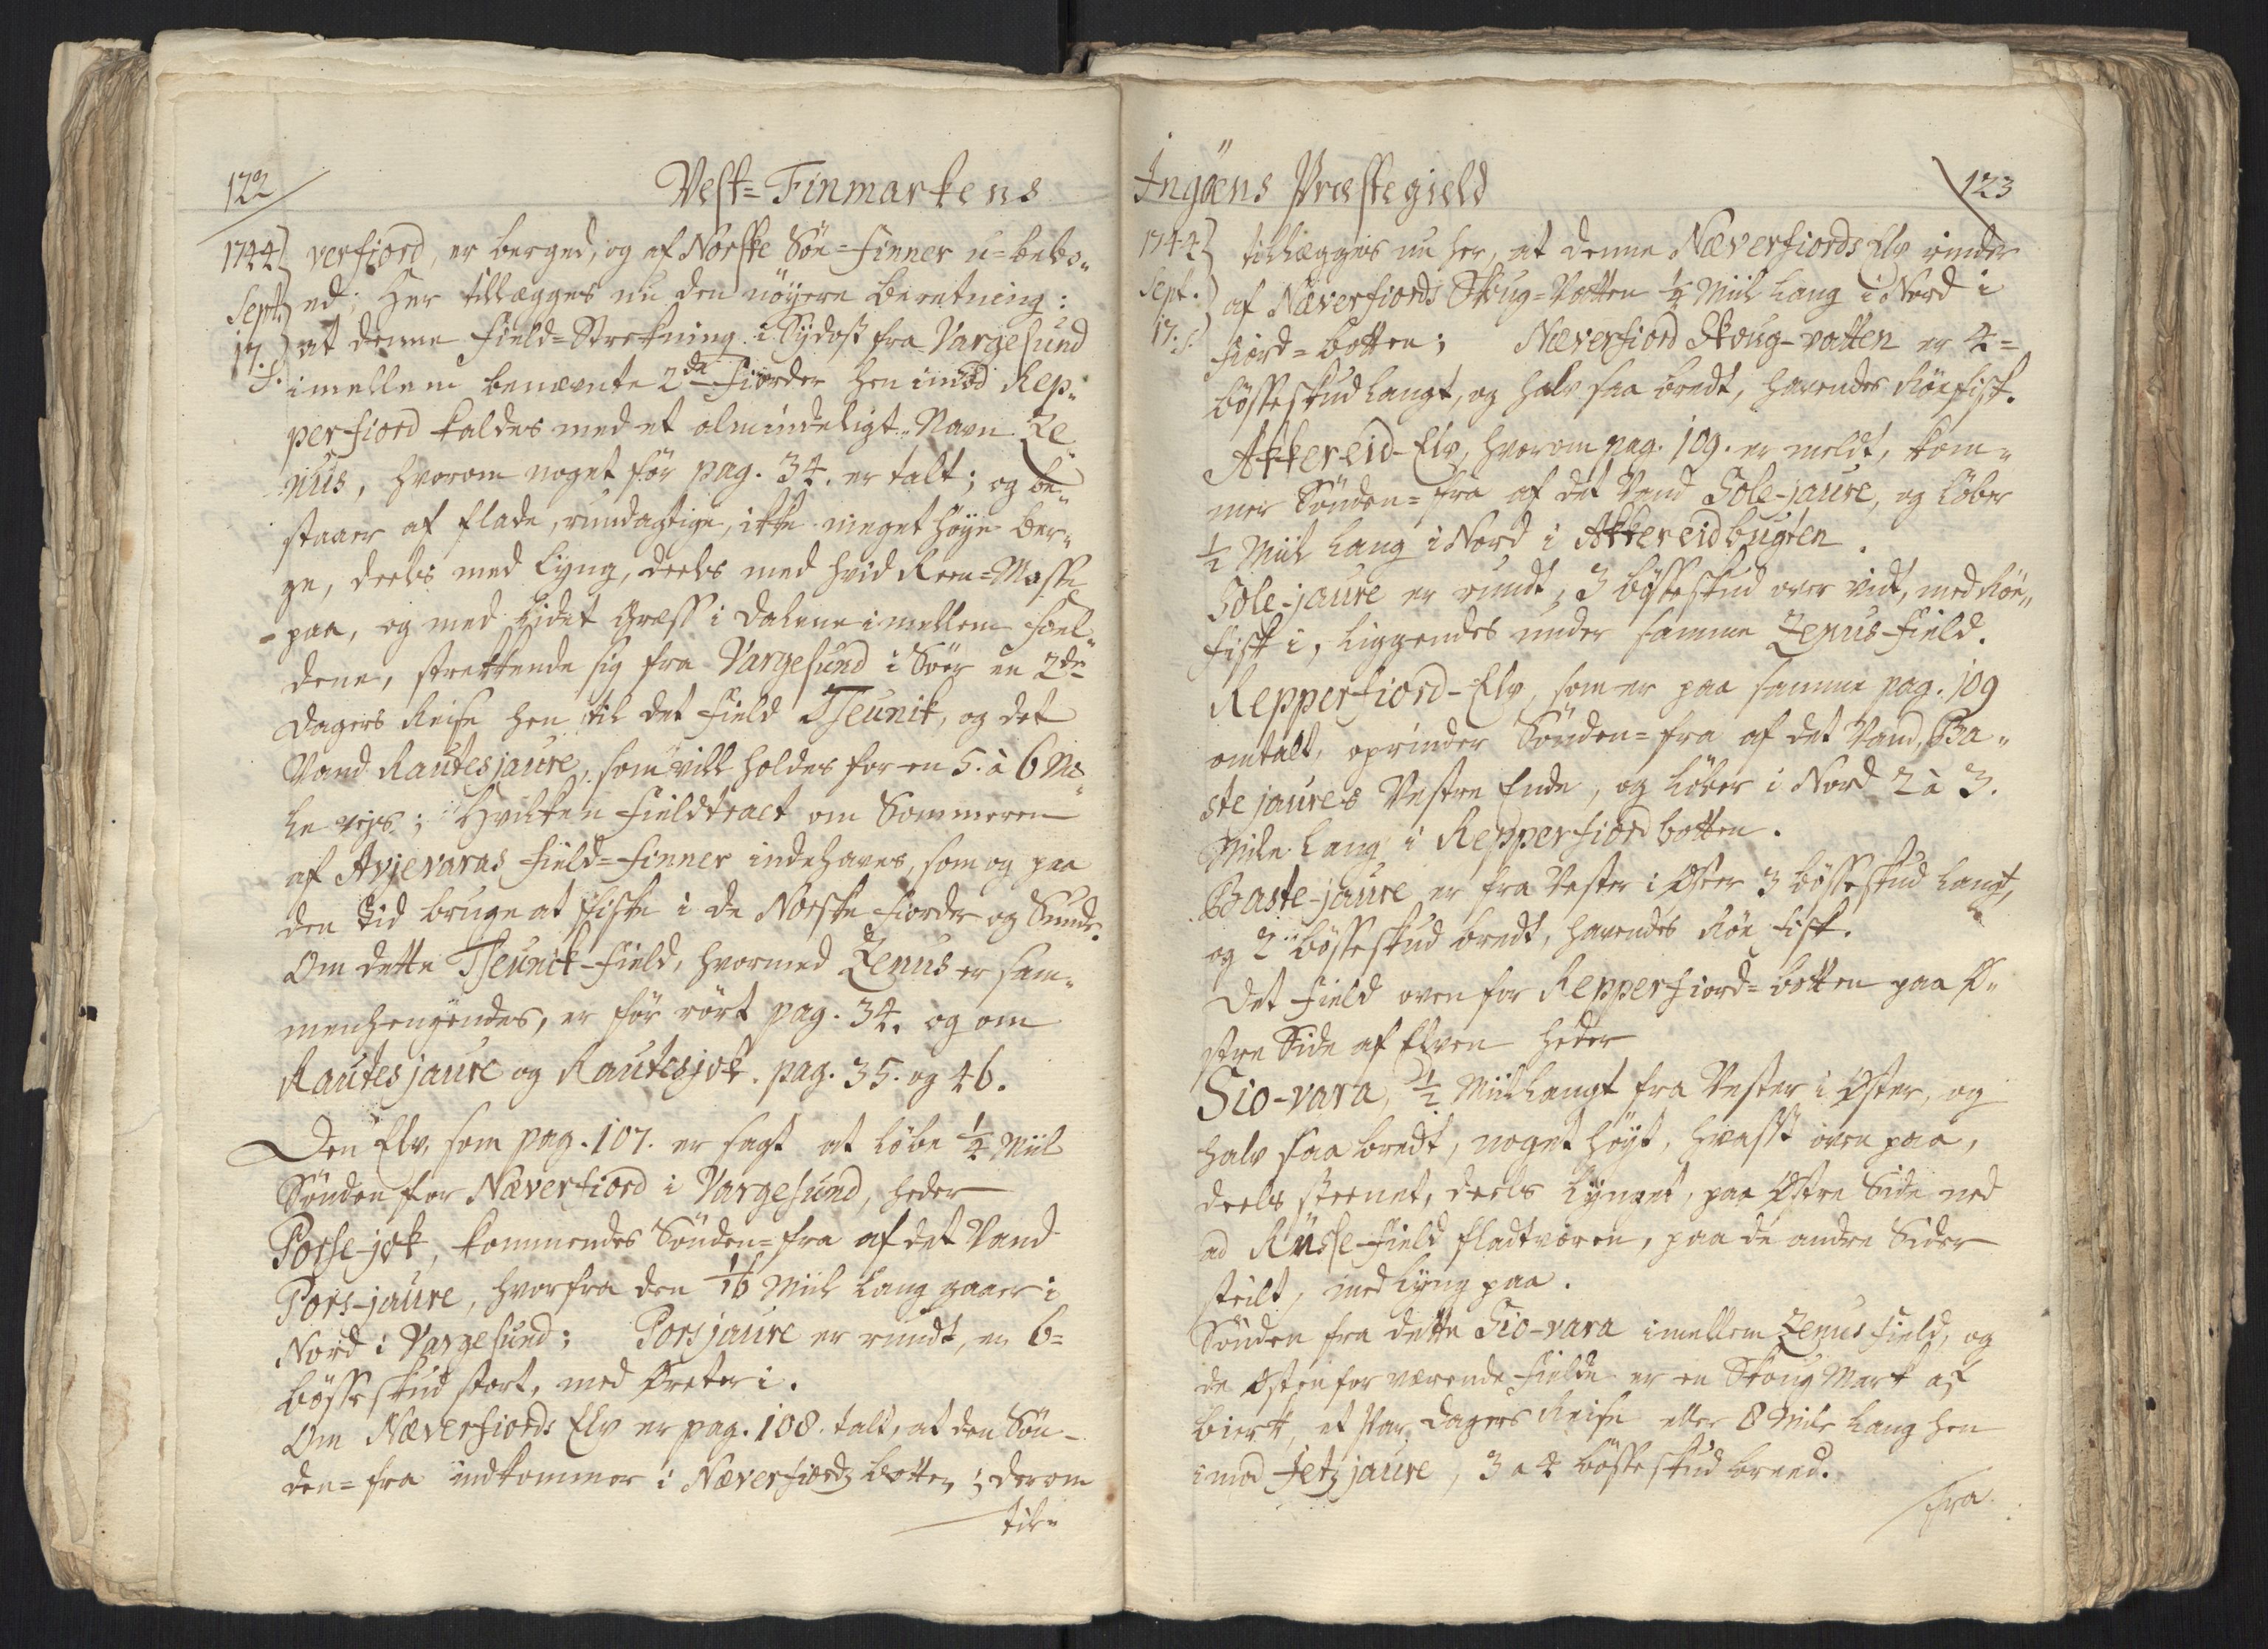 122
Vest=Finmarkens
1744 verfiord, er berged, og af Norske Söe=Finner u=bebo„
Sept. ed; Her tillægges nu den nöyere beretning:
17. at denne Field=Strekning i Sydost fra Vargesund
f. imellem benævnte 2de Fiorder hen imod Rep„
perfiord kaldes med et almindeligt Navn Ze„
nus, hvorom noget för pag. 34. er talt; og be„
staaer af flade, rundagtige, ikke meget höye ber„
ge, deels med Lyng, deels med hvid Reen=Masse
paa, og med Lidet Græss i dalene imellem Fiel„
dene, strekkende sig fra Vargesund i Söer en 2de
dagers Reise hen til det Field Tseunik, og det
Vand Rautesjaure, som vill holdes for en 5. à 6 Mi„
le vejs; Hvilken Fieldtract om Sommeren
af Avjevaras Field=Finner indehaves, som og paa
den tid bruge at fiske i de Norske Fiorder og Sunde.
Om dette Tseunik-Field, hvormed Zenus er sam„
menhengendes, er för rört pag. 34. og om
Rautesjaure og Rautesjok. pag. 35. og 46.
Den Elv, som pag. 107. er sagt at löbe 1/4 Miil
Sönden for Næverfiord i Vargesund, heder
Porse-jok, kommendes Sönden=fra af det Vand
Pors-jaure, hvorfra den 1/16 Miil Lang gaaer i
Nord i Vargesund; Porsjaure er rundt, en 6=
bösseskud stort, med Öreter i.
Om Næverfiords Elv er pag. 108. talt, at den Sön-
den=fra indkommer i Næverfiords botten; derom
til=
Ingöens Præstegield
123
1744 tillægges nu her, at denne Næverfiords Elv rinder
Sept. af Næverfiords Skoug=Vatten 1/4 Miil Lang i Nord i
17. f. Fiord=botten; Næverfiord Skoug-vatten er 4=
bösseskud Langt, og halv saa bredt, havendes Röefisk.
Akkereid-Elv, hvorom pag. 109. er meldt, kom„
mer Sönden=fra af det Vand Jole-jaure, og Löber
1/2 Miil Lang i Nord i Akkereidbugten.
Jole-jaure er rundt, 3 bösseskud over vidt, med Röe„
fisk i, Liggendes under samme Zenus-Field.
Repperfiord-Elv, som er paa samme pag. 109
omtalt, oprinder Sönden=fra af det Vand Ba„
stejaures Vestre Ende, og Löber i Nord 2 à 3.
Mile Lang i Repperfiordbotten.
Baste-jaure er fra Vester i Öster 3 bösseskud Langt,
og 2 bösseskud bredt, havendes Röe Fisk.
Det Field oven for Repperfiord=botten paa Ö„
stre Side af Elven heder
Sio-vara, 1/2 Miil Langt fra Vester i Öster, og
halv saa bredt, noget höyt, hvasst oven paa,
deels steenet, deels Lynget, paa Östre Side ned
ad Russe-Field fladtvoren, paa de andre Sider
steilt, med Lyng paa.
Sönden fra dette Sio-vara imellem Zenus Field, og
de Östenfor værende Fielde er en Skoug Mark af
birk, et Par dagers Reise eller 8 Mile Lang hen
imod Jetzjaure, 3 a 4 bösseskud breed.
Fra